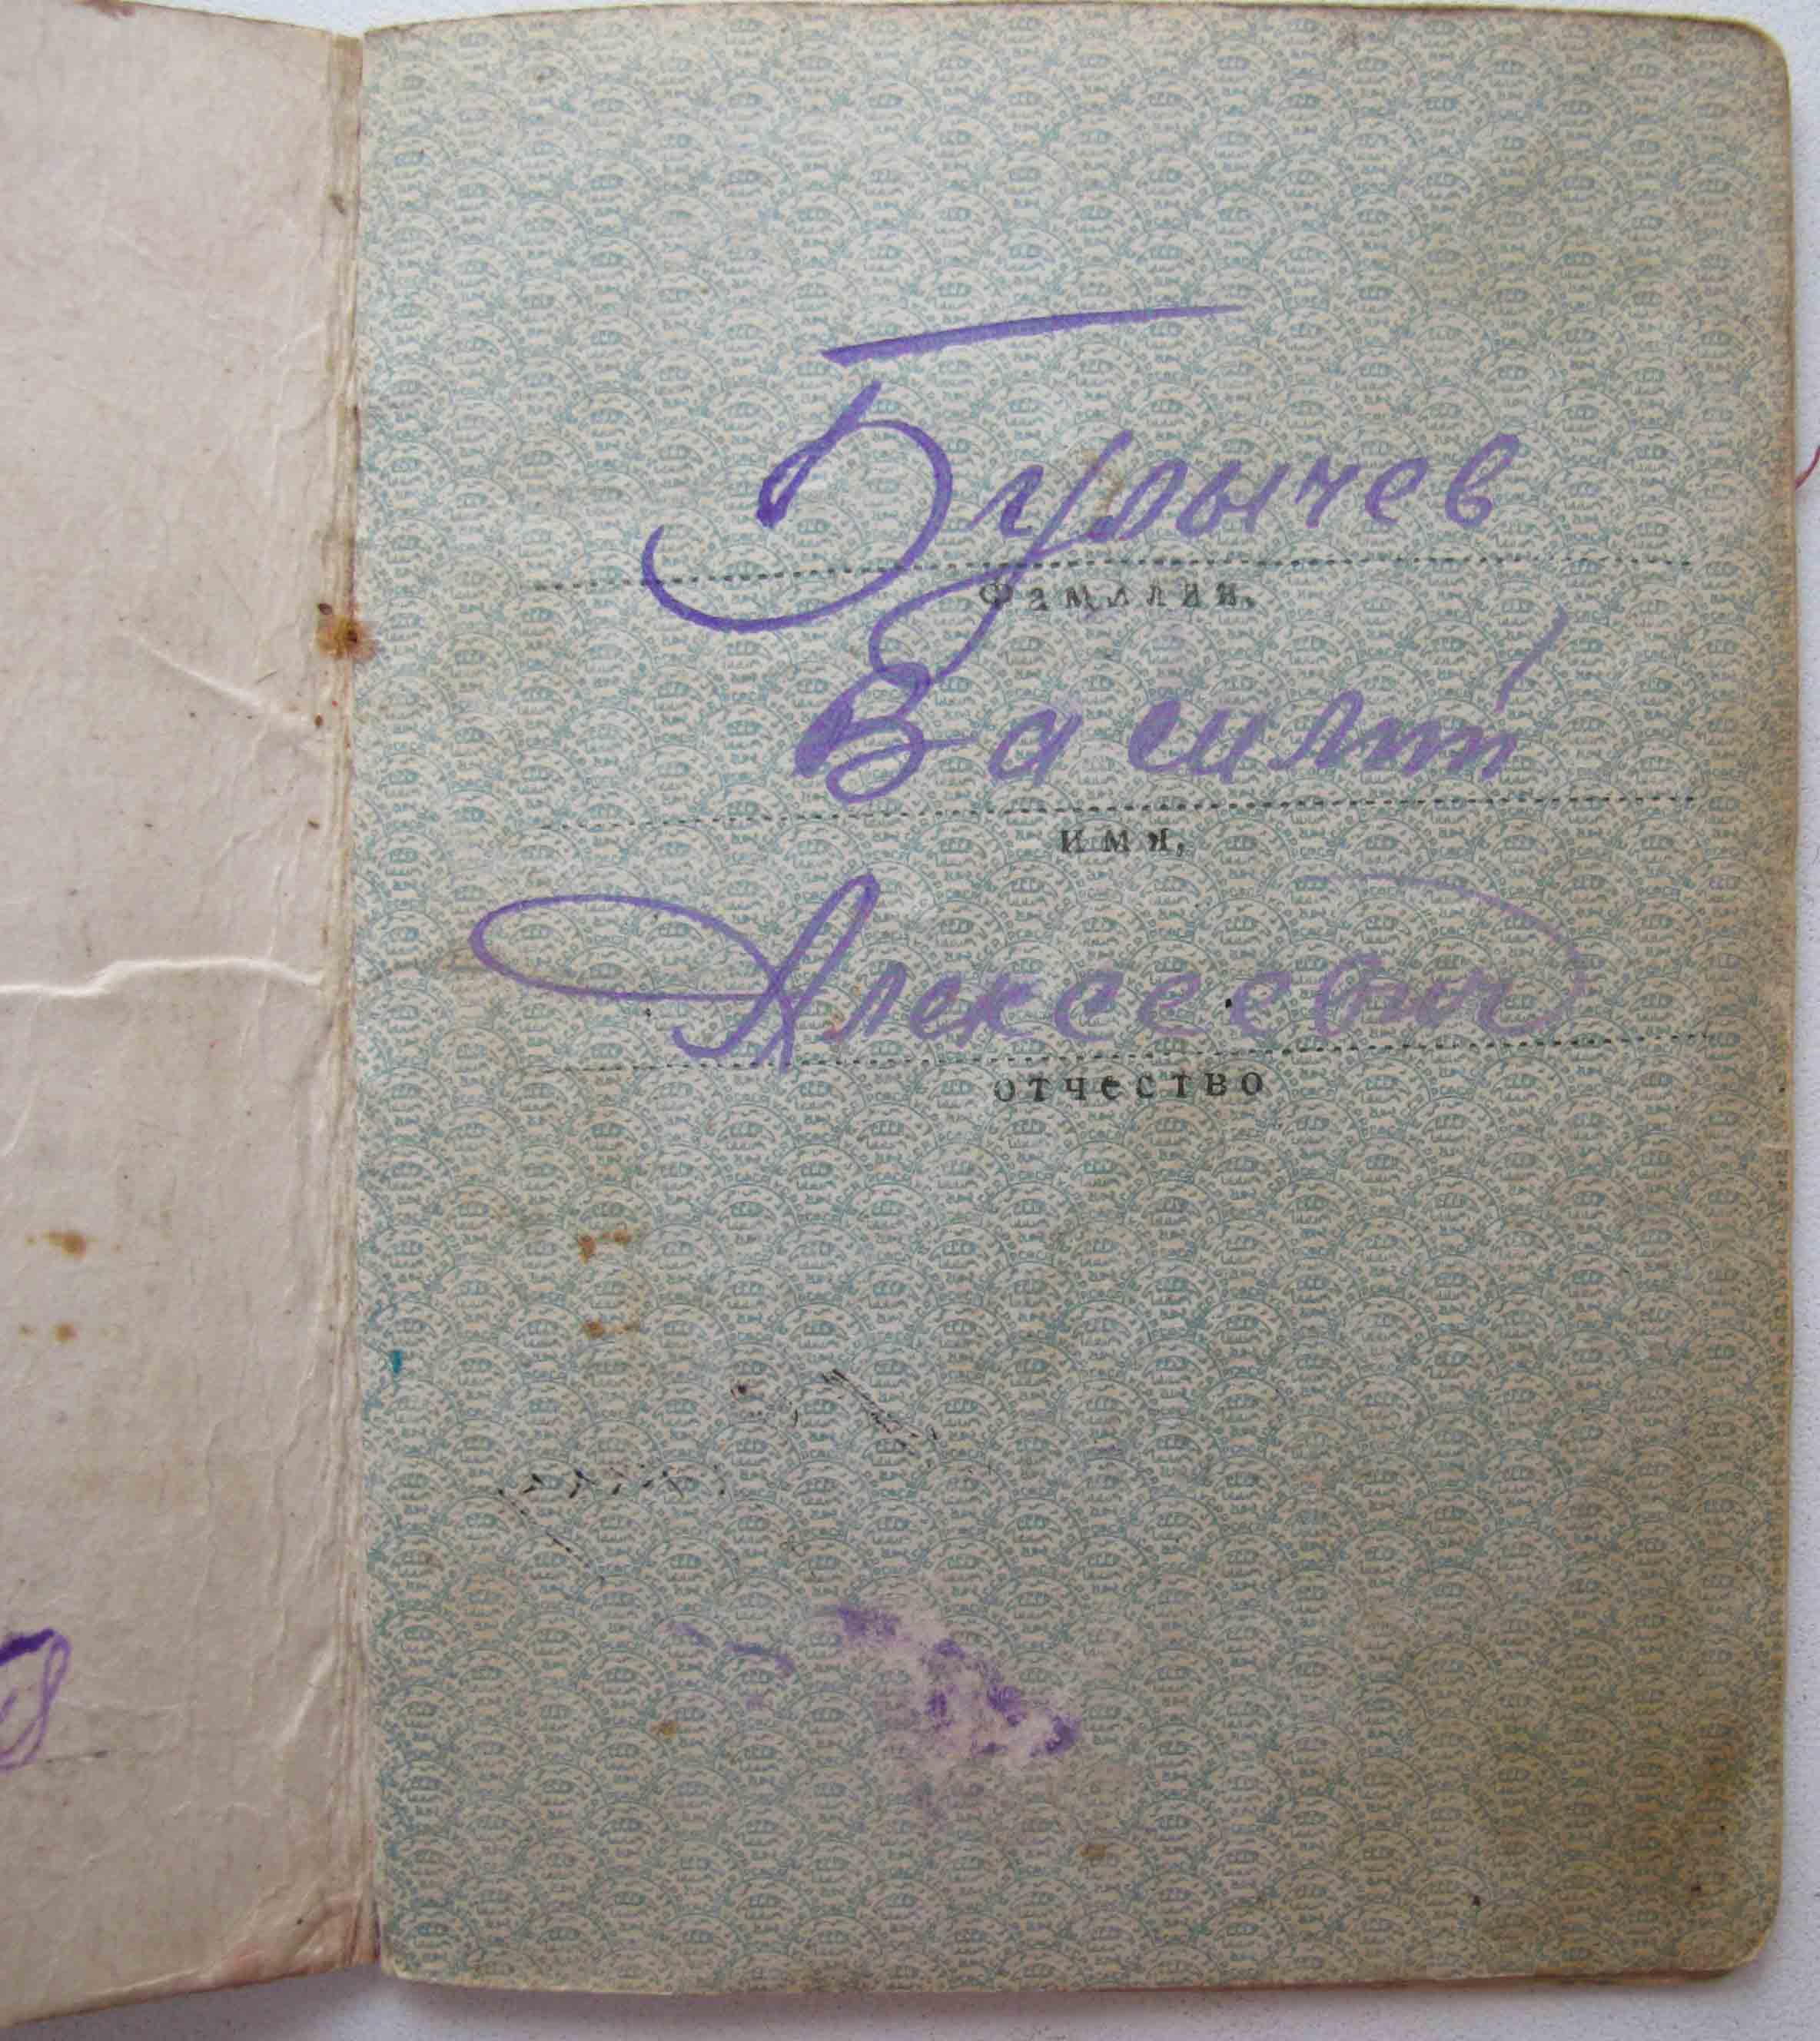 Булычев
фамилия,
Василий
имя,
Алексеевич
отчество